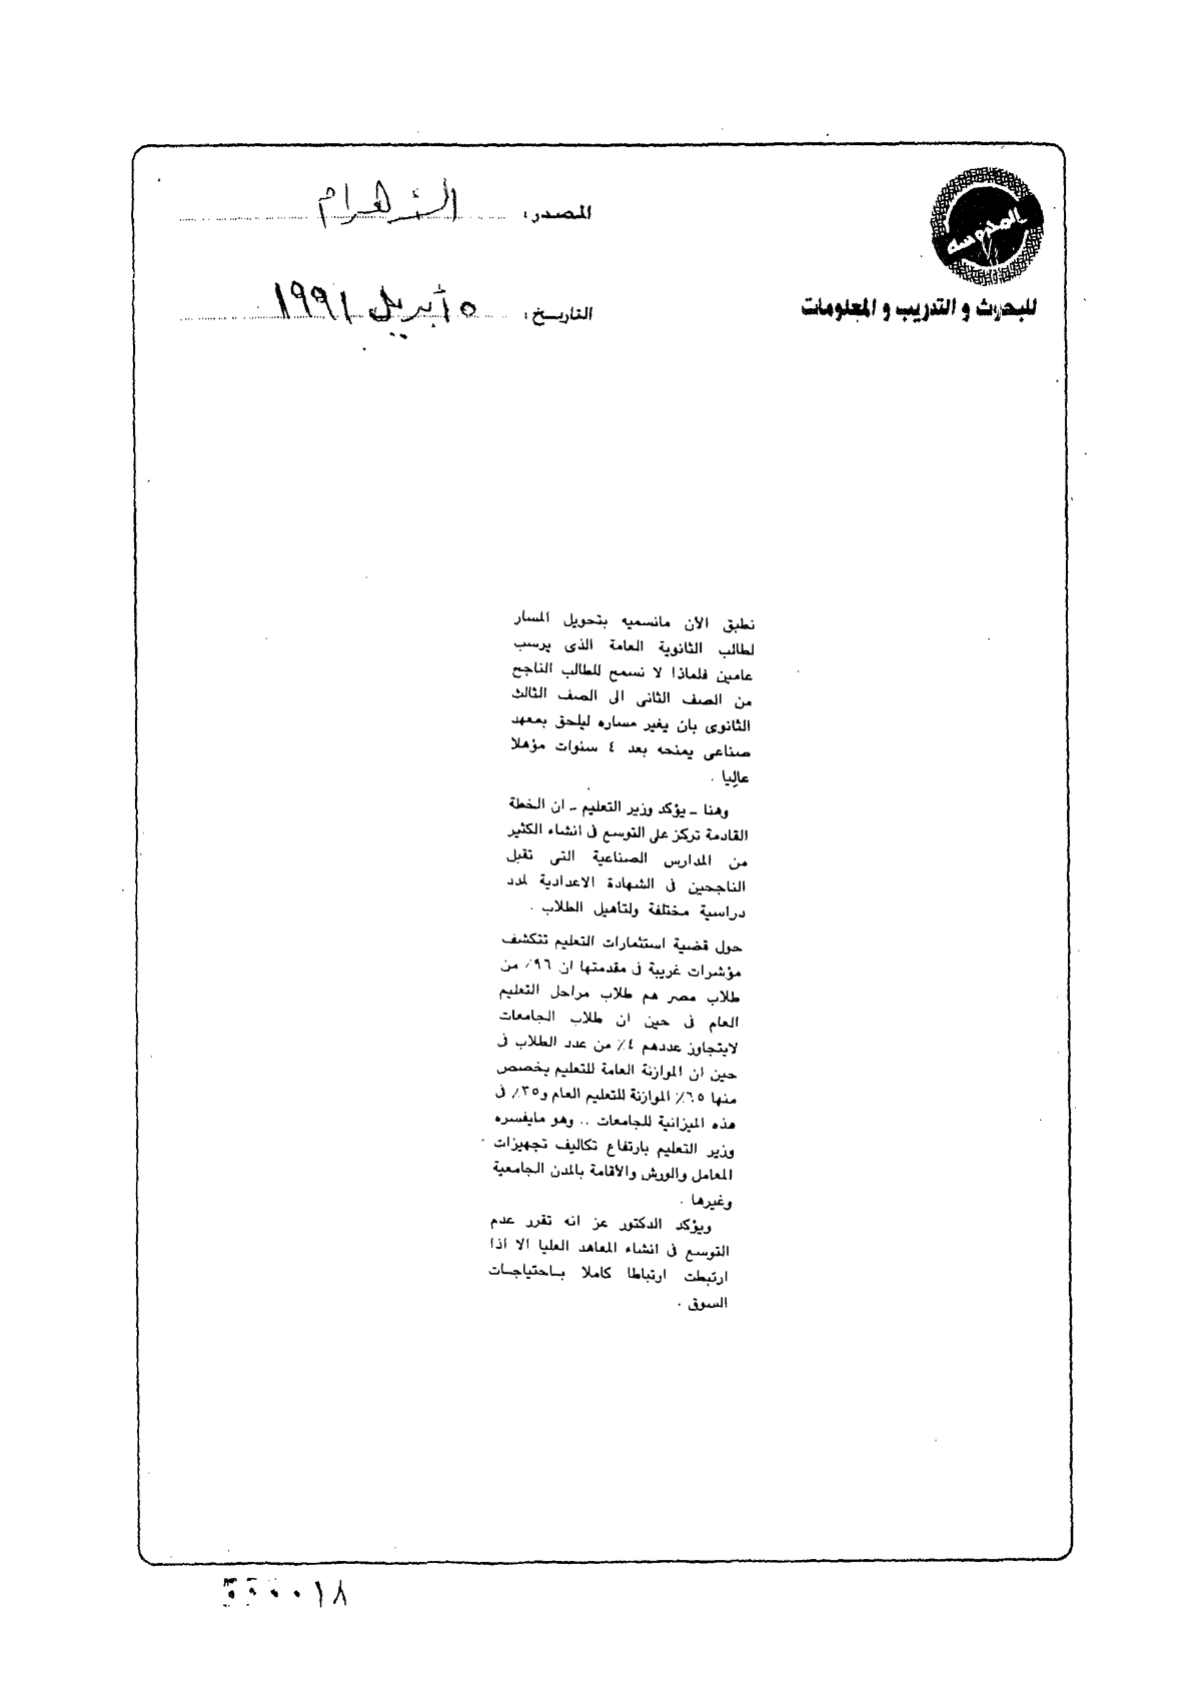 المحروسة
للبحوث و التدريب و المعلومات
المصدر: الأهرام
التاريخ: ٥ أبريل ١٩٩١
نطبق الآن مانسميه بتحويل المسار
لطالب الثانوية العامة الذى يرسب
عامين فلماذا لا نسمح للطالب الناجح
من الصف الثانى الى الصف الثالث
الثانوى بان يغير مساره ليلحق بمعهد
صناعى يمنحه بعد ٤ سنوات مؤهلا
عاليا .
وهنا ــ يؤكد وزير التعليم ــ ان الخطة
القادمة تركز على التوسع فى انشاء الكثير
من المدارس الصناعية التى تقبل
الناجحين فى الشهادة الاعدادية لمدد
دراسية مختلفة ولتأهيل الطلاب .
حول قضية استثمارات التعليم تتكشف
مؤشرات غريبة فى مقدمتها ان ٩٦٪ من
طلاب مصر هم طلاب مراحل التعليم
العام فى حين ان طلاب الجامعات
لايتجاوز عددهم ٤٪ من عدد الطلاب فى
حين ان الموازنة العامة للتعليم يخصص
منها ٦٥٪ الموازنة للتعليم العام و٣٥٪ فى
هذه الميزانية للجامعات .. وهو مايفسره
وزير التعليم بارتفاع تكاليف تجهيزات
المعامل والورش والأقامة بالمدن الجامعية
وغيرها .
ويؤكد الدكتور عز انه تقرر عدم
التوسع فى انشاء المعاهد العليا الا اذا
ارتبطت ارتباطا كاملا باحتياجات
السوق .